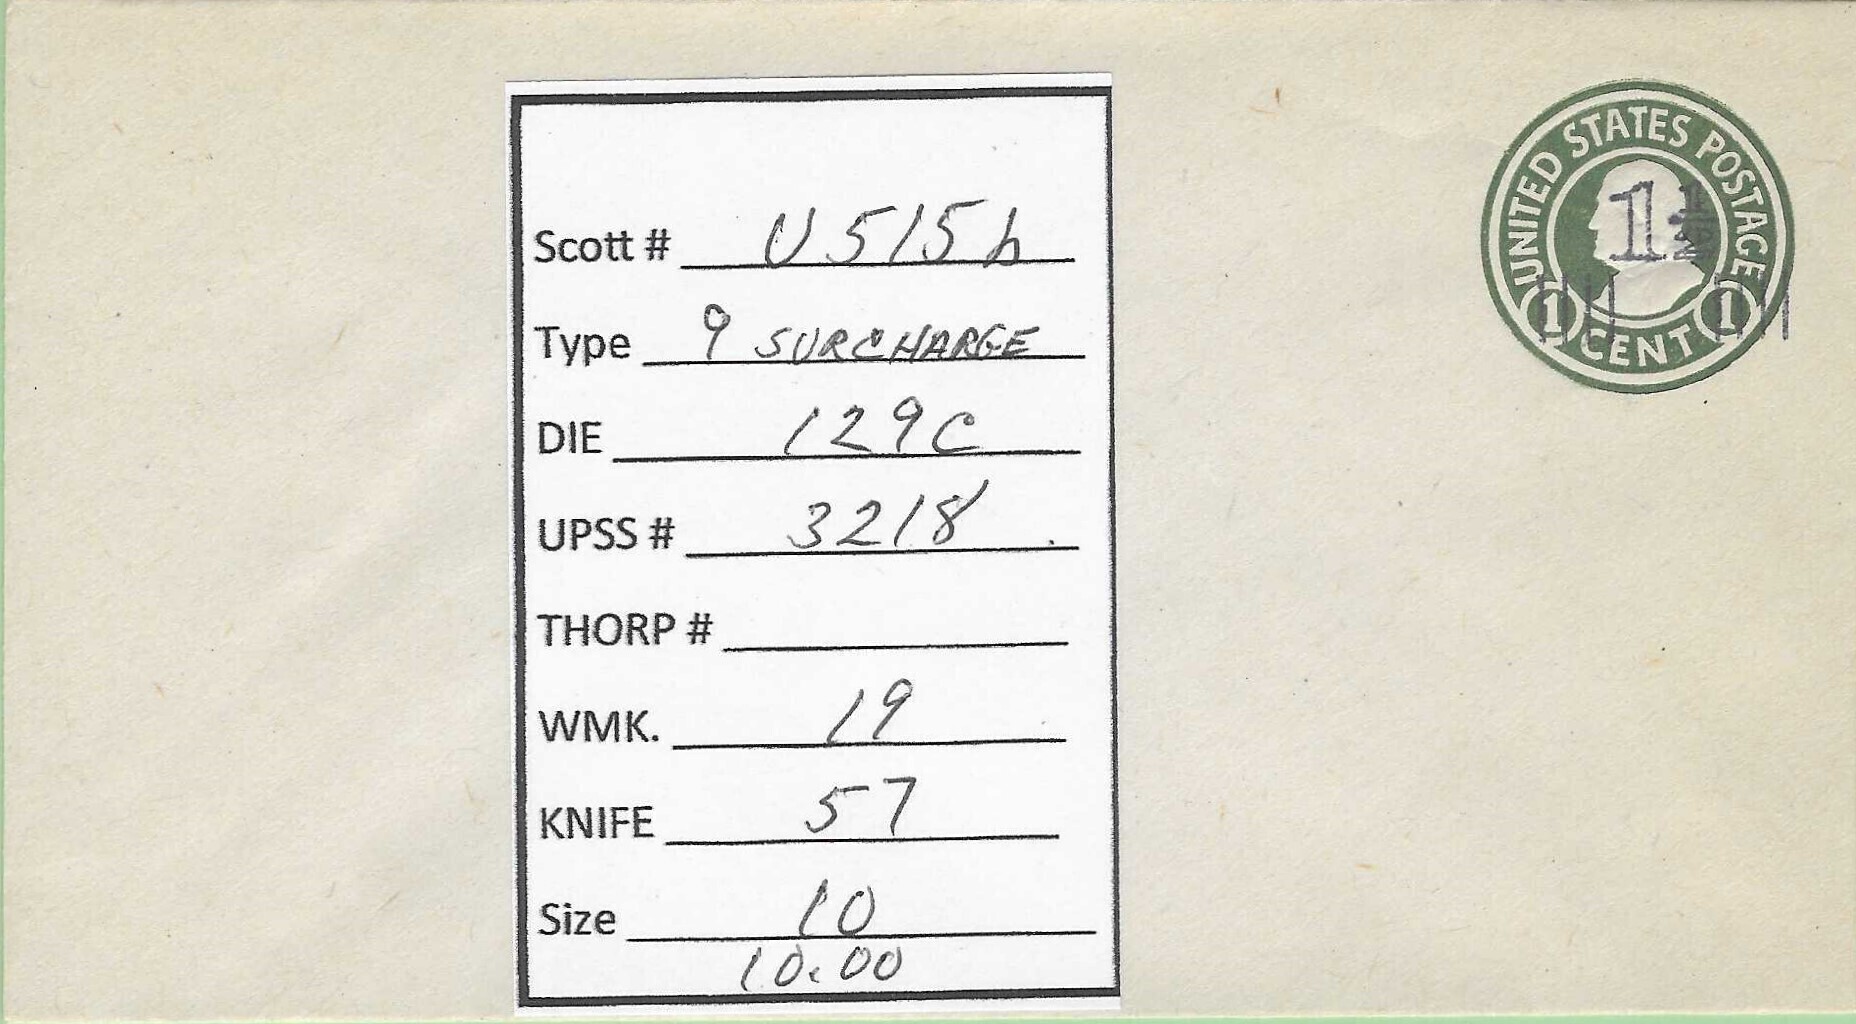 Scott # U515b
Type 9 SURCHARGE
DIE 129C
UPSS # 3218
THORP #
WMK. 19
KNIFE 57
Size 10
10.00
UNITED STATES POSTAGE
1½
1 CENT 1